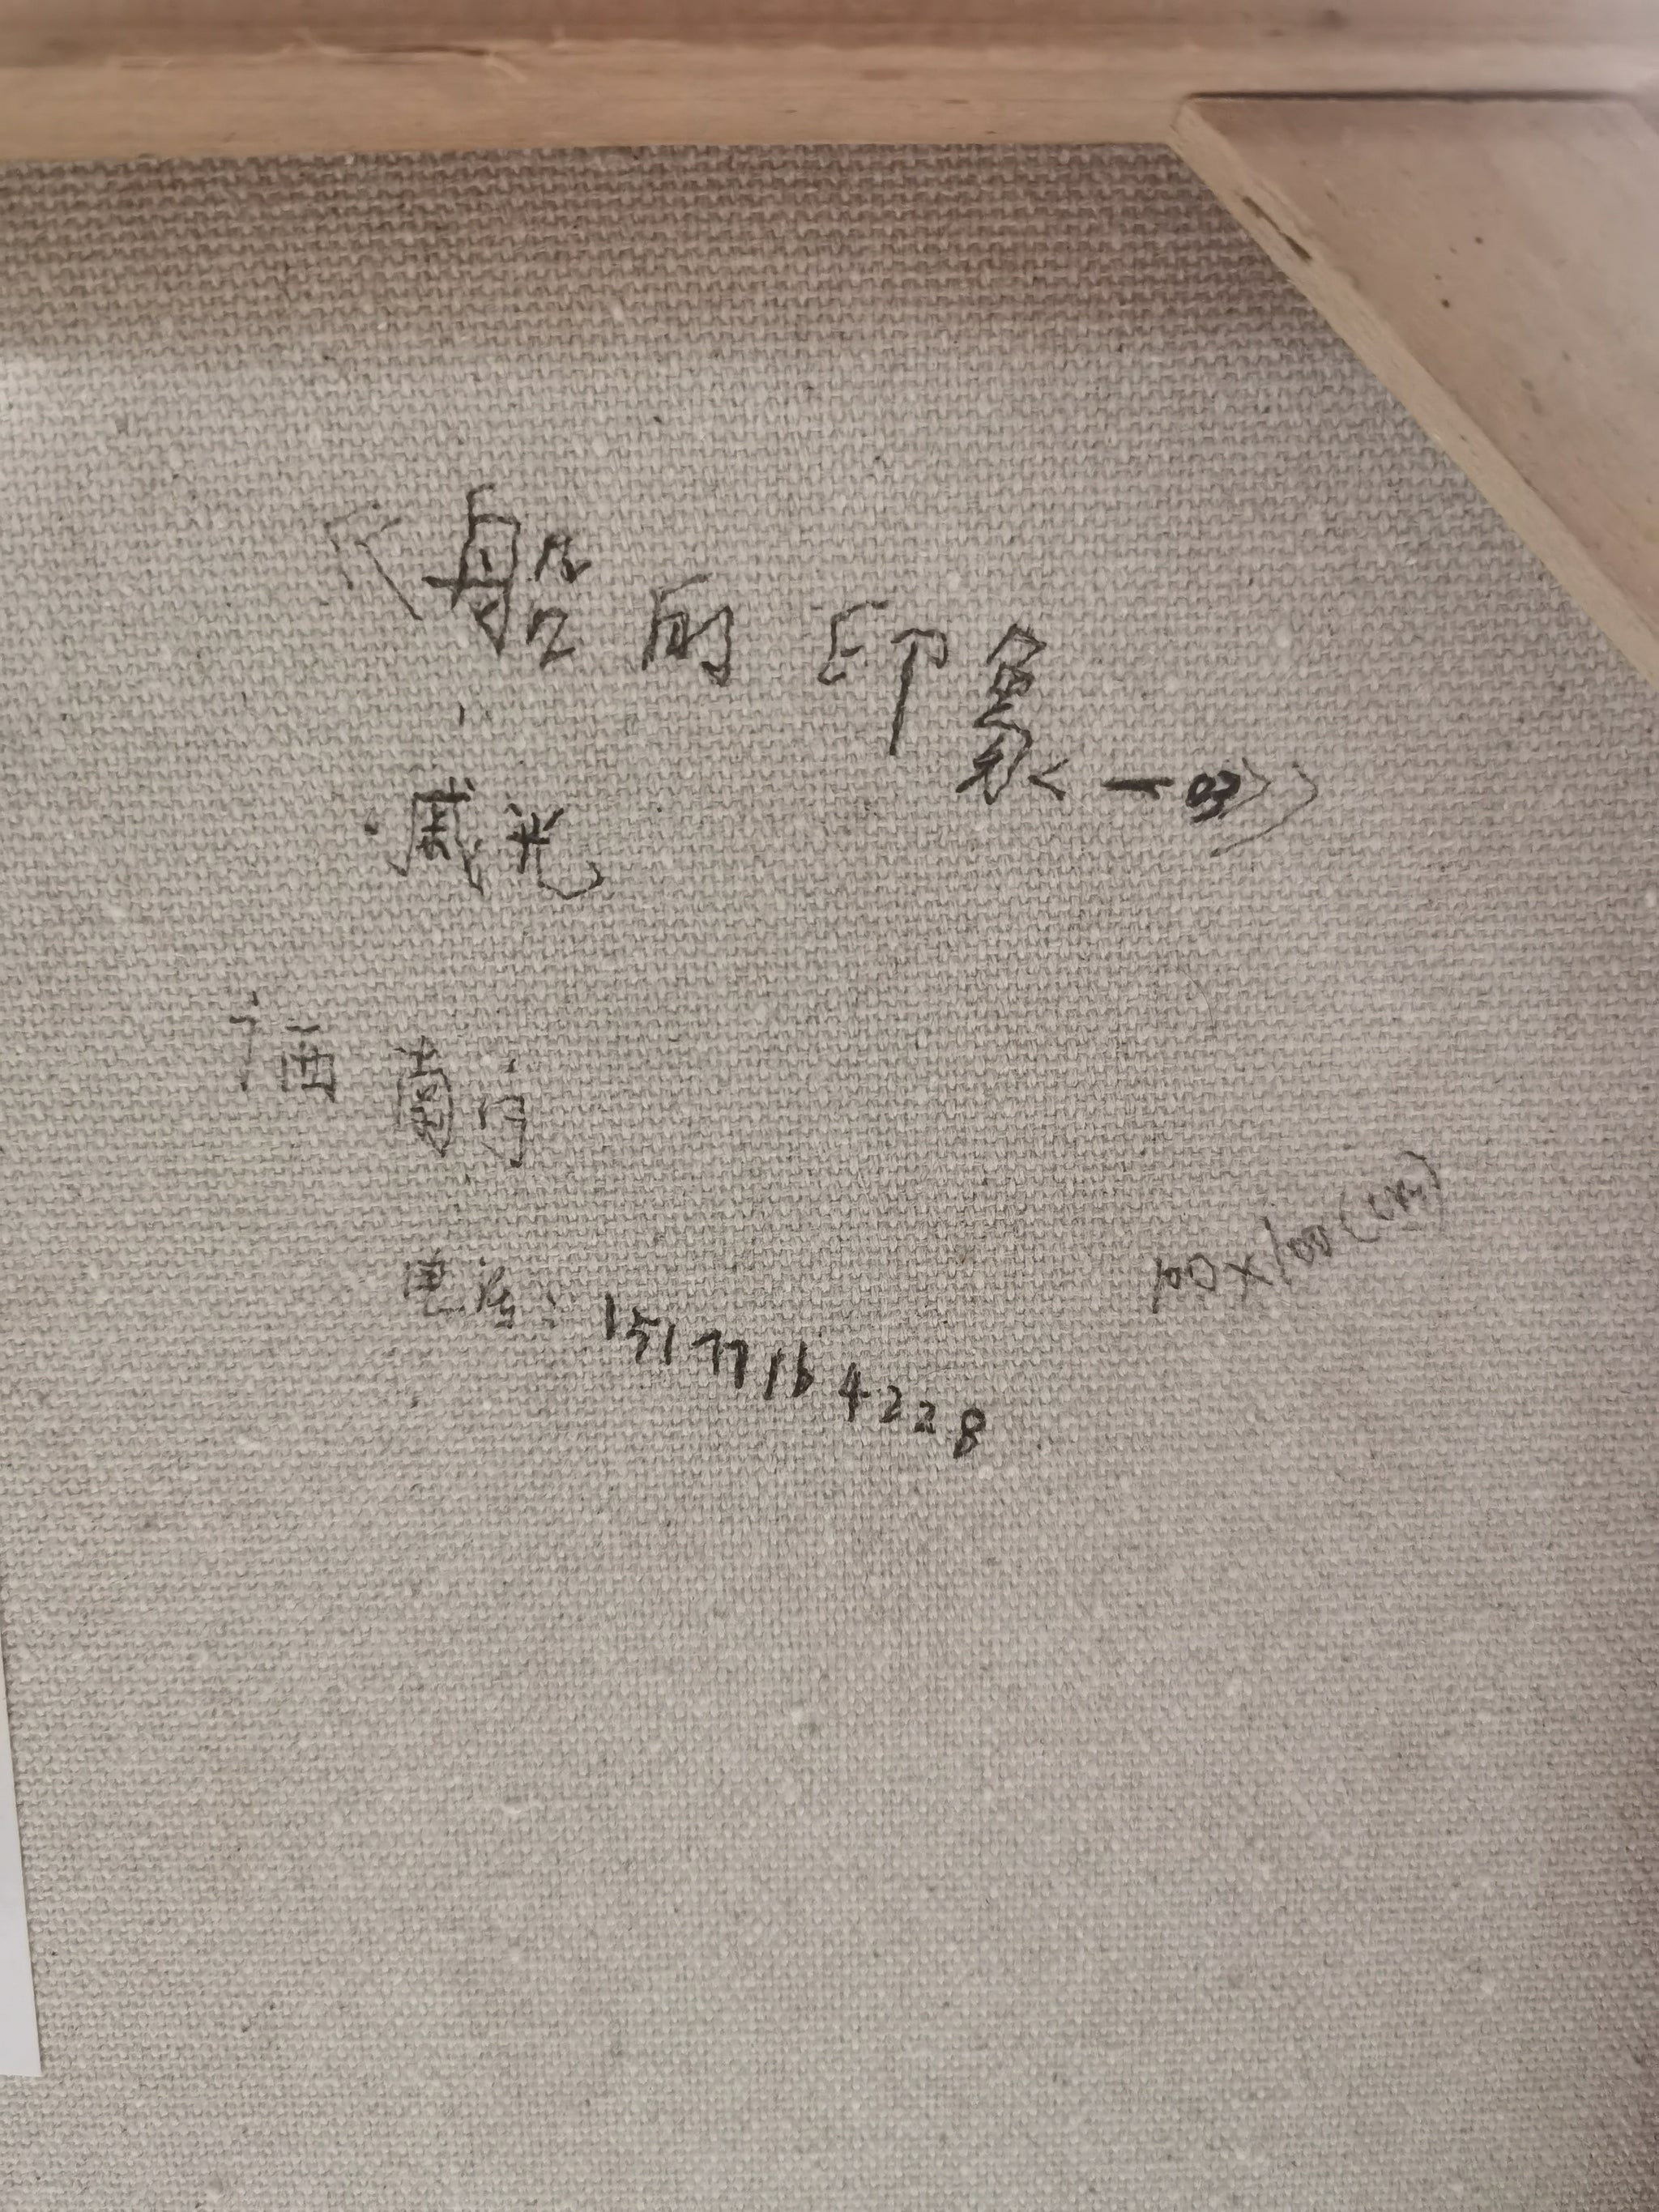 《船的印象<一>》
戚光
广西 南宁
电话:15177164228
100x100(cm)